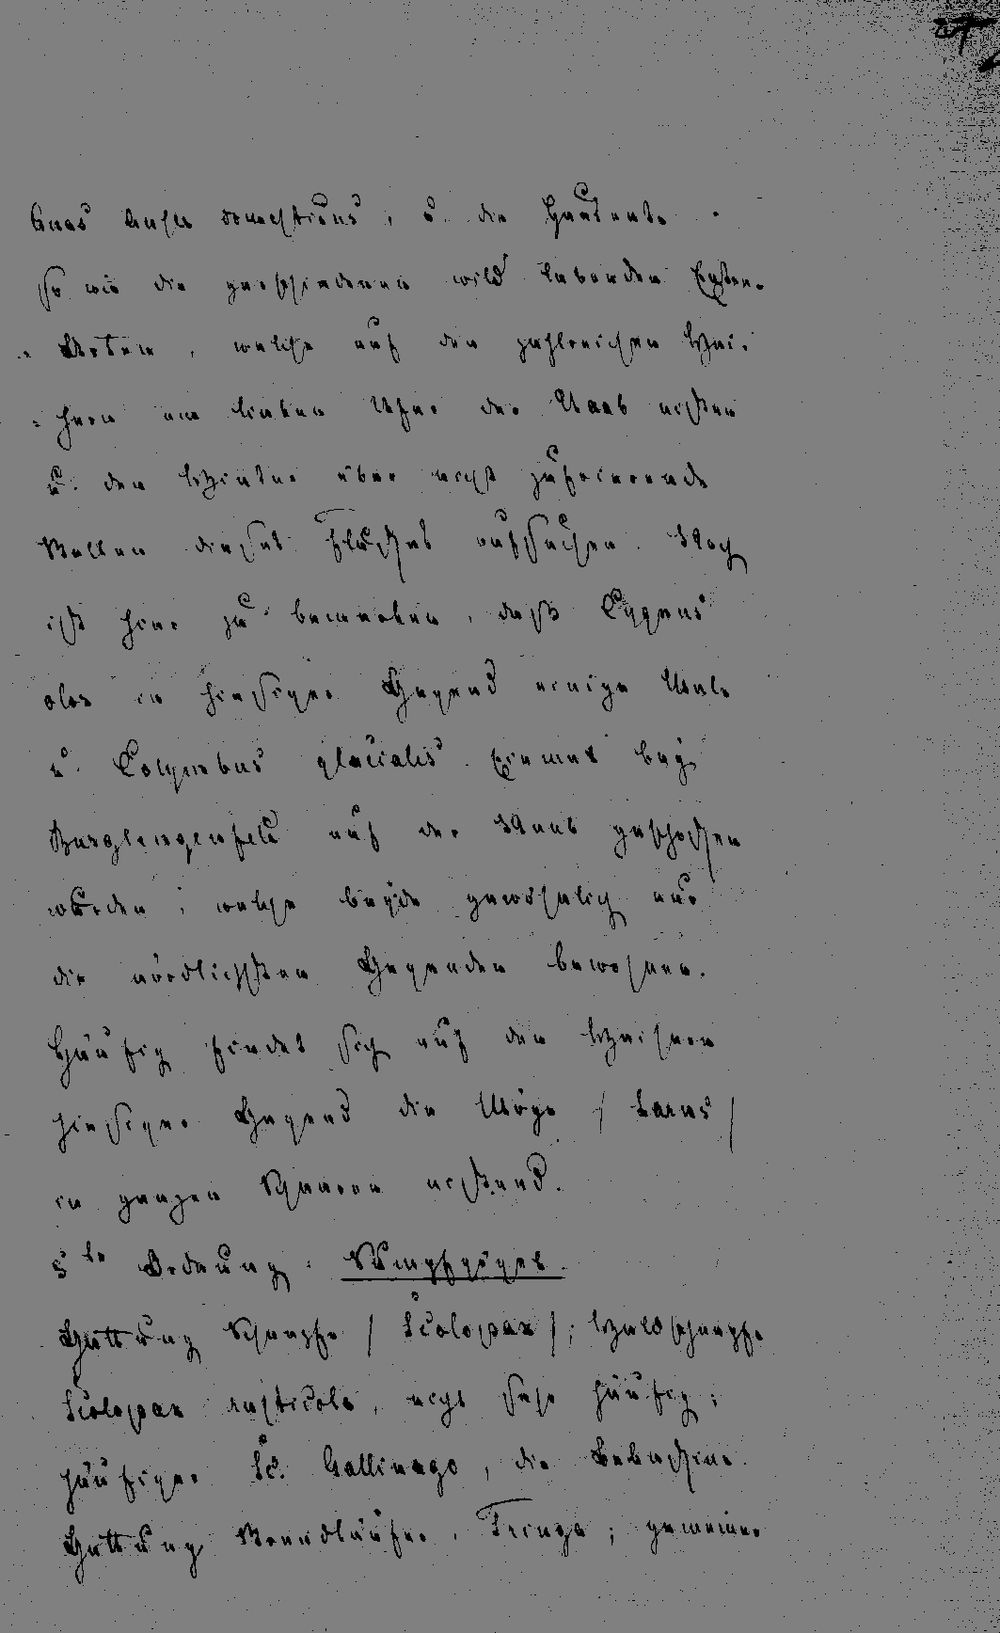 Anas Anser domesticus, u. die Hausente
so wie die verschiedenen wild lebenden Enten-
Arten, welche auf den zahlreichen Wei-
hern am linken Ufer der Naab nisten
u. den Winter über nicht zufrierende
Stellen dieses Flußes aufsuchen. Noch
ist hier zu bemerken, daß Cygnus
olor in hiesiger Gegend einige Male
u. Colymbus glacialis Einmal bey
Burglengenfeld auf der Naab geschoßen
wurden; welche beyde gewöhnlich nur
die nördlichsten Gegenden bewohnen.
Häufig findet sich auf den Weihern
hiesiger Gegend die Möge / Larus /
in ganzen Scharen nistend.
5te Ordnung. Sumpfvögel.
Gattung Schnepfe / Scolopax /; Waldschnepfe
Scolopax rusticola, nicht sehr häufig;
häufiger Sc. Gallinago, die Bekaßine.
Gattung Strandläufer. Tringa; gemeiner